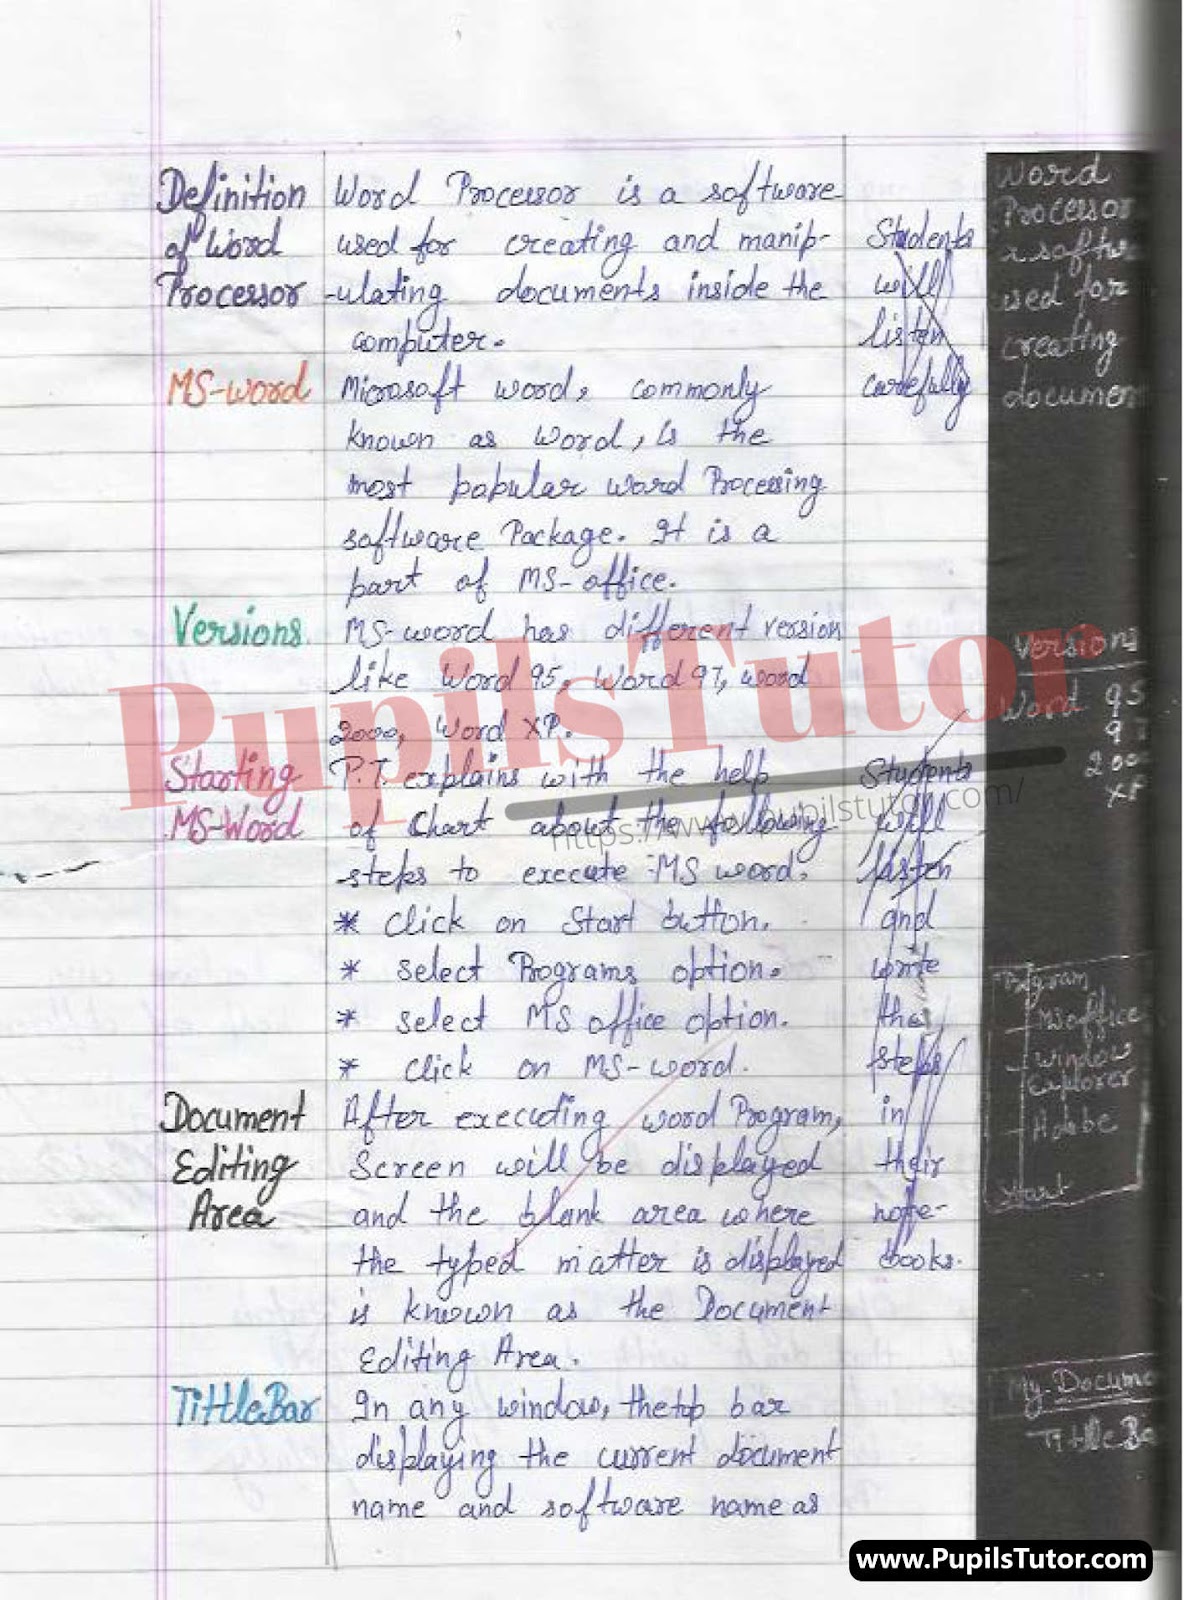 Definition
of Word
Processor
Word Processor is a software
used for creating and manip-
-ulating documents inside the
computer.
Students
will
listen
carefully
Word
Processor
software
used for
creating
documen
MS-word
Microsoft word, commonly
known as word, is the
most popular word Processing
software Package. It is a
part of MS-office.
Versions.
MS-word has different version
like Word 95, Word 97, word
2000, Word XP.
Versions
Word 95
97
200
XP
Starting
MS-Word
P.T. explains with the help
of Chart about the following
-steps to execute MS word.
* Click on Start button.
* select Programs option.
* select MS office option.
* click on MS-word.
Students
will
listen
and
write
the
steps
in
their
note-
books.
Program
Msoffice
Window
Explorer
Adobe
Start
Document
Editing
Area
After executing word Program,
Screen will be displayed
and the blank area where
the typed matter is displayed
is known as the Document
Editing Area.
TittleBar
In any window, the top bar
displaying the current document
name and software name as
My-Docume
TittleBa
PupilsTutor
https://www.pupilstutor.com/
www.PupilsTutor.com